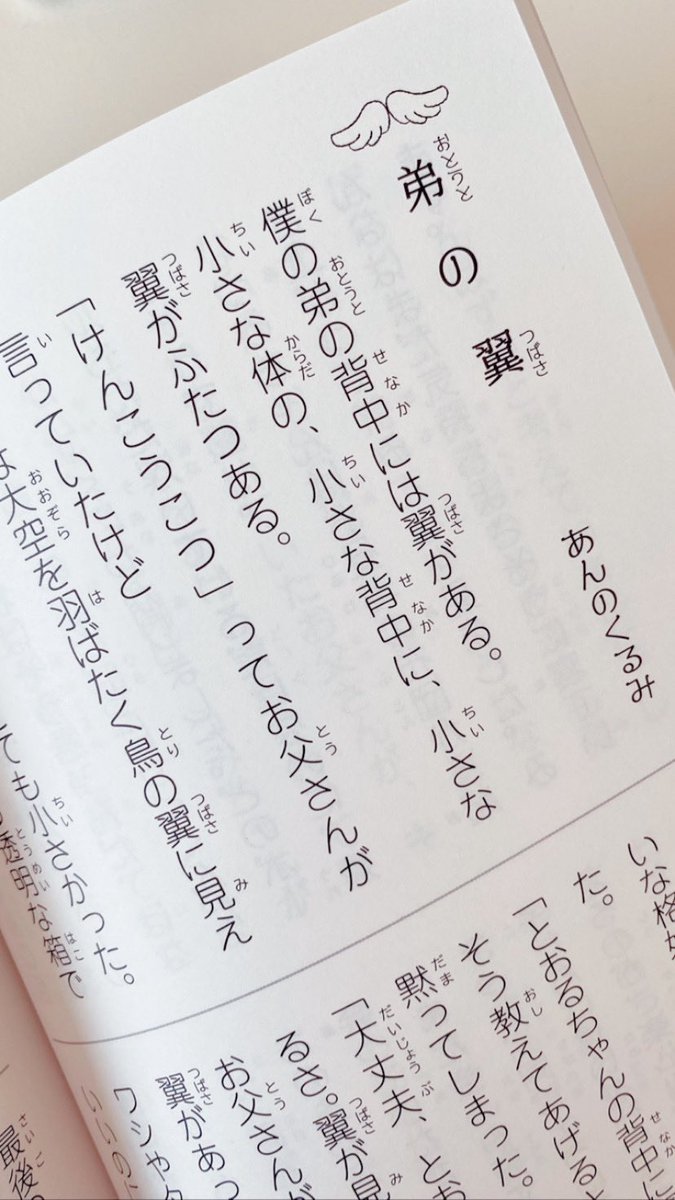 弟の翼
あんのくるみ
僕の弟の背中には翼がある。
小さな体の、小さな背中に、小さな
翼がふたつある。
「けんこうこつ」ってお父さんが
言っていたけど
大空を羽ばたく鳥の翼に見え
ても小さかった。
透明な箱で
いな格
た。
「とおるちゃんの背中に
そう教えてあげる
黙ってしまった。
「大丈夫、とお
るさ。翼が見
お父さんが
翼があっ
ワシやタ
いいの
最後